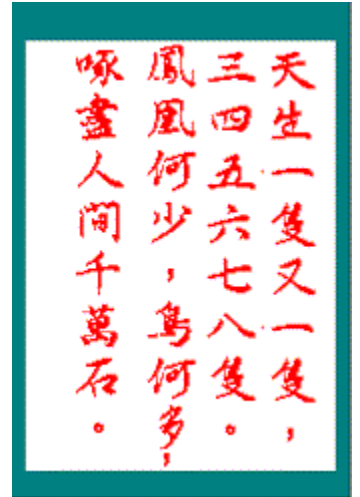 天生一隻又一隻，
三四五六七八隻。
鳳凰何少，鳥何多，
啄盡人間千萬石。